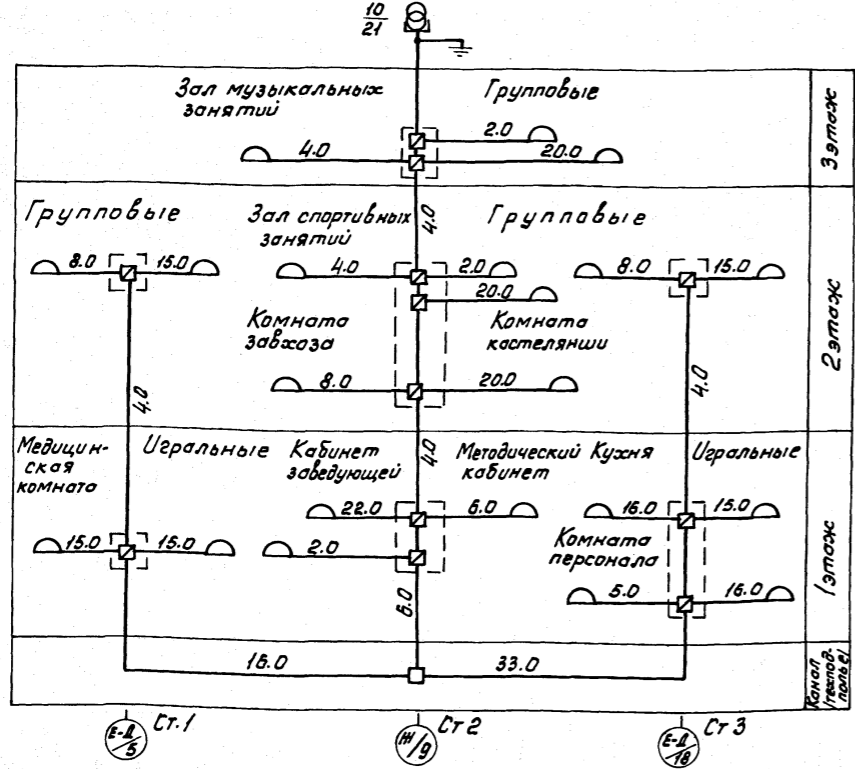 10
21
Зал музыкальных
занятий
Групповые
2.0
4.0
20.0
3 этаж
4.0
Групповые
Зал спортивных
занятий
Групповые
8.0
15.0
4.0
2.0
8.0
15.0
20.0
Комната
завхоза
Комната
кастелянши
2 этаж
8.0
20.0
4.0
4.0
Медицин-
ская
комната
Игральные
Кабинет
заведующей
4.0
Методический
кабинет
Кухня
Игральные
22.0
6.0
16.0
15.0
15.0
15.0
2.0
Комната
персонала
1 этаж
6.0
5.0
16.0
18.0
33.0
Канал
/техпод-
полье/
Е-Д/5
Ст.1
Ж/9
Ст 2
Е-Д/18
Ст 3